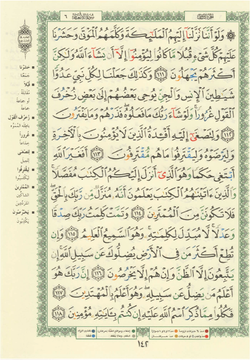 ۞ وَلَوْ أَنَّنَا نَزَّلْنَا إِلَيْهِمُ الْمَلَٰٓئِكَةَ وَكَلَّمَهُمُ الْمَوْتَىٰ وَحَشَرْنَا
عَلَيْهِمْ كُلَّ شَىْءٍ قُبُلًا مَّا كَانُوا۟ لِيُؤْمِنُوٓا۟ إِلَّآ أَن يَشَآءَ اللَّهُ وَلَٰكِنَّ
أَكْثَرَهُمْ يَجْهَلُونَ ﴿١١١﴾ وَكَذَٰلِكَ جَعَلْنَا لِكُلِّ نَبِىٍّ عَدُوًّا
شَيَٰطِينَ الْإِنسِ وَالْجِنِّ يُوحِى بَعْضُهُمْ إِلَىٰ بَعْضٍ زُخْرُفَ
الْقَوْلِ غُرُورًا وَلَوْ شَآءَ رَبُّكَ مَا فَعَلُوهُ فَذَرْهُمْ وَمَا يَفْتَرُونَ
﴿١١٢﴾ وَلِتَصْغَىٰٓ إِلَيْهِ أَفْـِٔدَةُ الَّذِينَ لَا يُؤْمِنُونَ بِالْءَاخِرَةِ
وَلِيَرْضَوْهُ وَلِيَقْتَرِفُوا۟ مَا هُم مُّقْتَرِفُونَ ﴿١١٣﴾ أَفَغَيْرَ اللَّهِ
أَبْتَغِى حَكَمًا وَهُوَ الَّذِىٓ أَنزَلَ إِلَيْكُمُ الْكِتَٰبَ مُفَصَّلًا
وَالَّذِينَ ءَاتَيْنَٰهُمُ الْكِتَٰبَ يَعْلَمُونَ أَنَّهُۥ مُنَزَّلٌ مِّن رَّبِّكَ بِالْحَقِّ
فَلَا تَكُونَنَّ مِنَ الْمُمْتَرِينَ ﴿١١٤﴾ وَتَمَّتْ كَلِمَتُ رَبِّكَ صِدْقًا
وَعَدْلًا لَّا مُبَدِّلَ لِكَلِمَٰتِهِۦ وَهُوَ السَّمِيعُ الْعَلِيمُ ﴿١١٥﴾ وَإِن
تُطِعْ أَكْثَرَ مَن فِى الْأَرْضِ يُضِلُّوكَ عَن سَبِيلِ اللَّهِ إِن
يَتَّبِعُونَ إِلَّا الظَّنَّ وَإِنْ هُمْ إِلَّا يَخْرُصُونَ ﴿١١٦﴾ إِنَّ رَبَّكَ هُوَ
أَعْلَمُ مَن يَضِلُّ عَن سَبِيلِهِۦ وَهُوَ أَعْلَمُ بِالْمُهْتَدِينَ ﴿١١٧﴾
فَكُلُوا۟ مِمَّا ذُكِرَ اسْمُ اللَّهِ عَلَيْهِ إِن كُنتُم بِـَٔايَٰتِهِۦ مُؤْمِنِينَ ﴿١١٨﴾
١٤٢